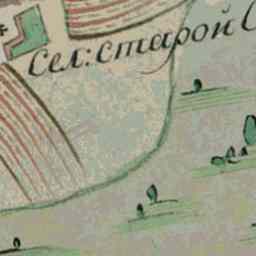 Сел: старой С